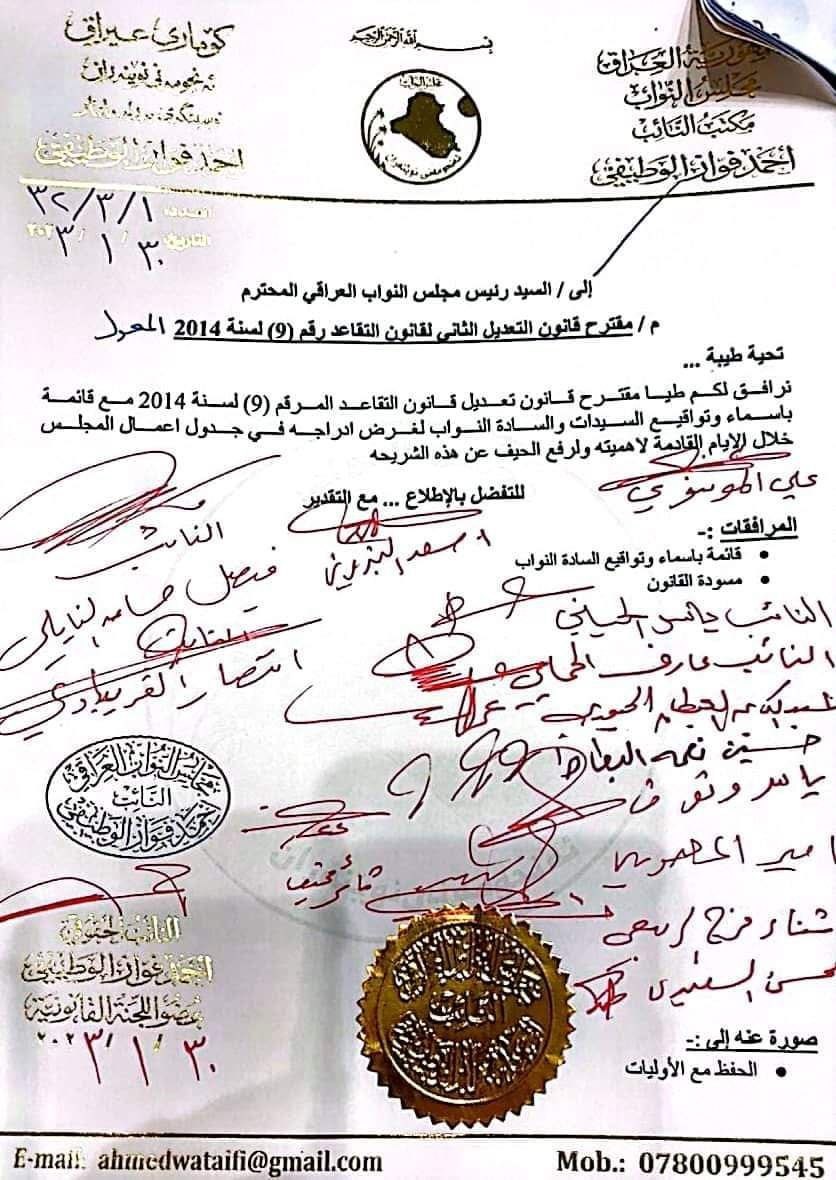 بسم الله الرحمن الرحيم
جمهورية العراق
مجلس النواب
مكتب النائب
أحمد فواز الوطيفي
كوماری عیراق
ئه نجومه نی نوینه ران
احمد فواز الوطيفي
مجلس النواب
العدد: ٣٢/٣/١
التاريخ ٣٠ / ١ / ٢٠٢٣
إلى / السيد رئيس مجلس النواب العراقي المحترم
م / مقترح قانون التعديل الثاني لقانون التقاعد رقم (9) لسنة 2014 المعدل
تحية طيبة ...
نرافق لكم طيا مقترح قانون تعديل قانون التقاعد المرقم (9) لسنة 2014 مع قائمة
باسماء وتواقيع السيدات والسادة النواب لغرض ادراجه في جدول اعمال المجلس
خلال الايام القادمة لاهميته ولرفع الحيف عن هذه الشريحه
للتفضل بالإطلاع ... مع التقدير
علي الموسوي
المرافقات :-
• قائمة باسماء وتواقيع السادة النواب
• مسودة القانون
النائب
فيصل حسام النايلي
النائبة
انتصار
النائب
النائب عارف الحمامي
ياسر وتوت
ثائر مخيف
امير المعموري
ثناء
مجلس النواب العراقي
النائب
أحمد فواز الوطيفي
النائب الحقوقي
احمد فواز الوطيفي
عضو اللجنة القانونية
٣٠ / ١ / ٢٠٢٣
النائب
صورة عنه إلى :-
• الحفظ مع الأوليات
E-mail: ahmedwataifi@gmail.com
Mob.: 07800999545